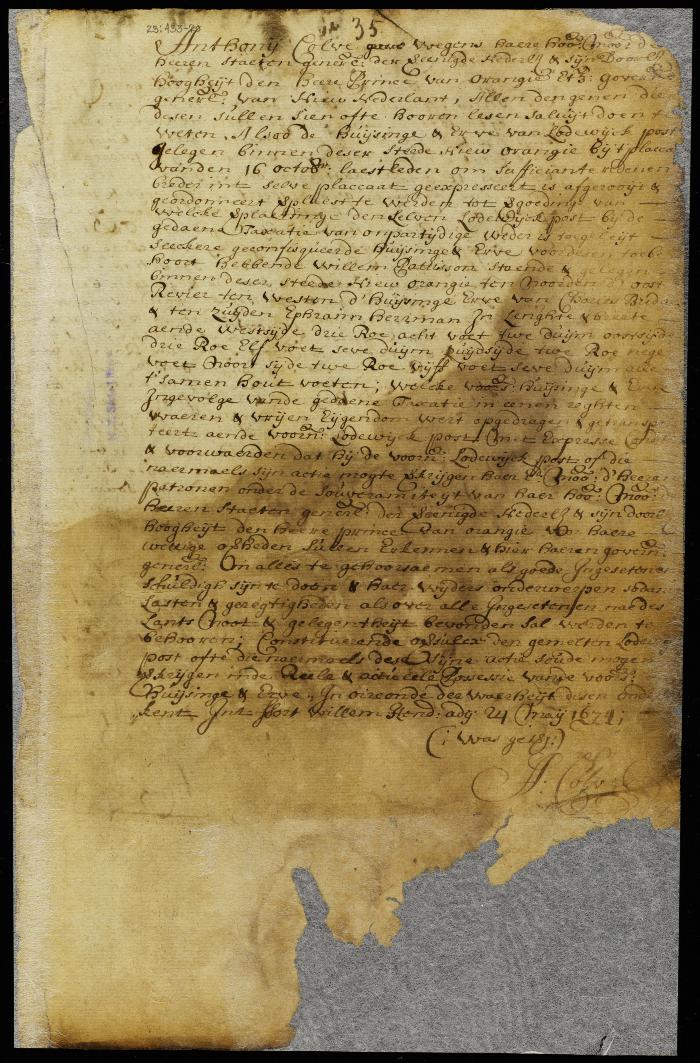 23:433-20
35
Anthonij Colve van wegens haere hoo: Moo: de
heeren Staeten genere: der Vereenigde Nederl: & Sijn Doorl:
hoogheijt den heere Prince van orangie Etz: govern
generl: van Nieuw Nederlant, Allen den genen die
desen sullen sien ofte hooren lesen saluijt doen te
weten, Alsoo de huijsinge & Erve van Lodewijck post
gelegen binnen deser steede Nieuw orangie bij't placca
vanden 16 octobr: laestleden om suffisiante redenen
breder int selve placcaat geexpresseert is afgerooyt &
geordonneert geplaest te werden tot vergoeding van
welcke plaetsinge den selven Lodewijck post bij de
gedaene Taxatie van onpartijdige weder is toegeleijt
seeckere geconfisqueerde huijsinge & Erve voor desen toebe
hoort hebbende Willem Pattison staende &
binnen deser steede Nieuw orangie ten Noorden d' oost
Revier ten Westen d' huijsinge Erve van
& ten zuijden Ephraim Herrman In Lenghte & breete
aende westsijde drie Roe acht voet twe duijm oostsijde
drie Roe Elf voet seve duijm zuijdsijde twe Roe nege
voet Noort sijde twe Roe vijff voet seve duijm alle
t'samen hout voeten; welcke voors: huijsinge & Erve
Ingevolge vande gedaene Taxatie in eenen reghten
waeren & vrijen Eijgendom wert opgedragen & getransp
teert aende voorn: Lodewijck post, Met Expresse
& voorwaerden dat hij de voorn: Lodewijck post of die
naermaels sijn actie mogte krijgen haer Ho: Moo: d' heeren
patronen onder de Souveraniteijt van haer hoo: Moo: d
heeren Staeten generl: der Vereenigde Nederl: & sijn doorl
hoogheijt den heere prince van orangie voor haere
wettige overheden sullen Erkennen & hier haeren govern
generl: In alles te gehoorsaemen als goede Ingesetenen
schuldigh sijn te doen & haer wijders onderwerpen sodan
Lasten & geregtigheden als over alle Ingesetenen na des
Lants Noot & gelegentheijt bevonden sal werden te
behooren; Constituerende oversulcx den gemelten Lodew
post ofte die naermaels dese sijne actie soude mogen
krijgen in de Reele & actueele possessie vande voors:
huijsinge & Erve, In oirconde der waerheijt desen onde
kent Int ffort Willem Hend: ady 24 Maij 1674;
(: was get:)
A: Colve